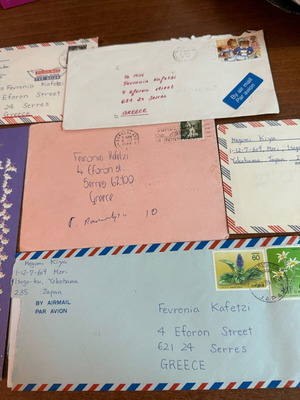 Fevronia Kafetzi
4 Eforon Street
621 24 Serres
GREECE
To Miss
Fevronia Kafetzi
4 Eforon street
621 24 Serres
GREECE
By air mail
Par avion
4 Eforon st.
Serres 62100
Greece
10
Megumi Kiya
1-12-7-604 Mori, Isogo
Yokohama, Japan
Megumi Kiya
1-12-7-604 Mori
Isogo-ku, Yokohama
235 Japan
BY AIRMAIL
PAR AVION
60
Fevronia Kafetzi
4 Eforon Street
621 24 Serres
GREECE